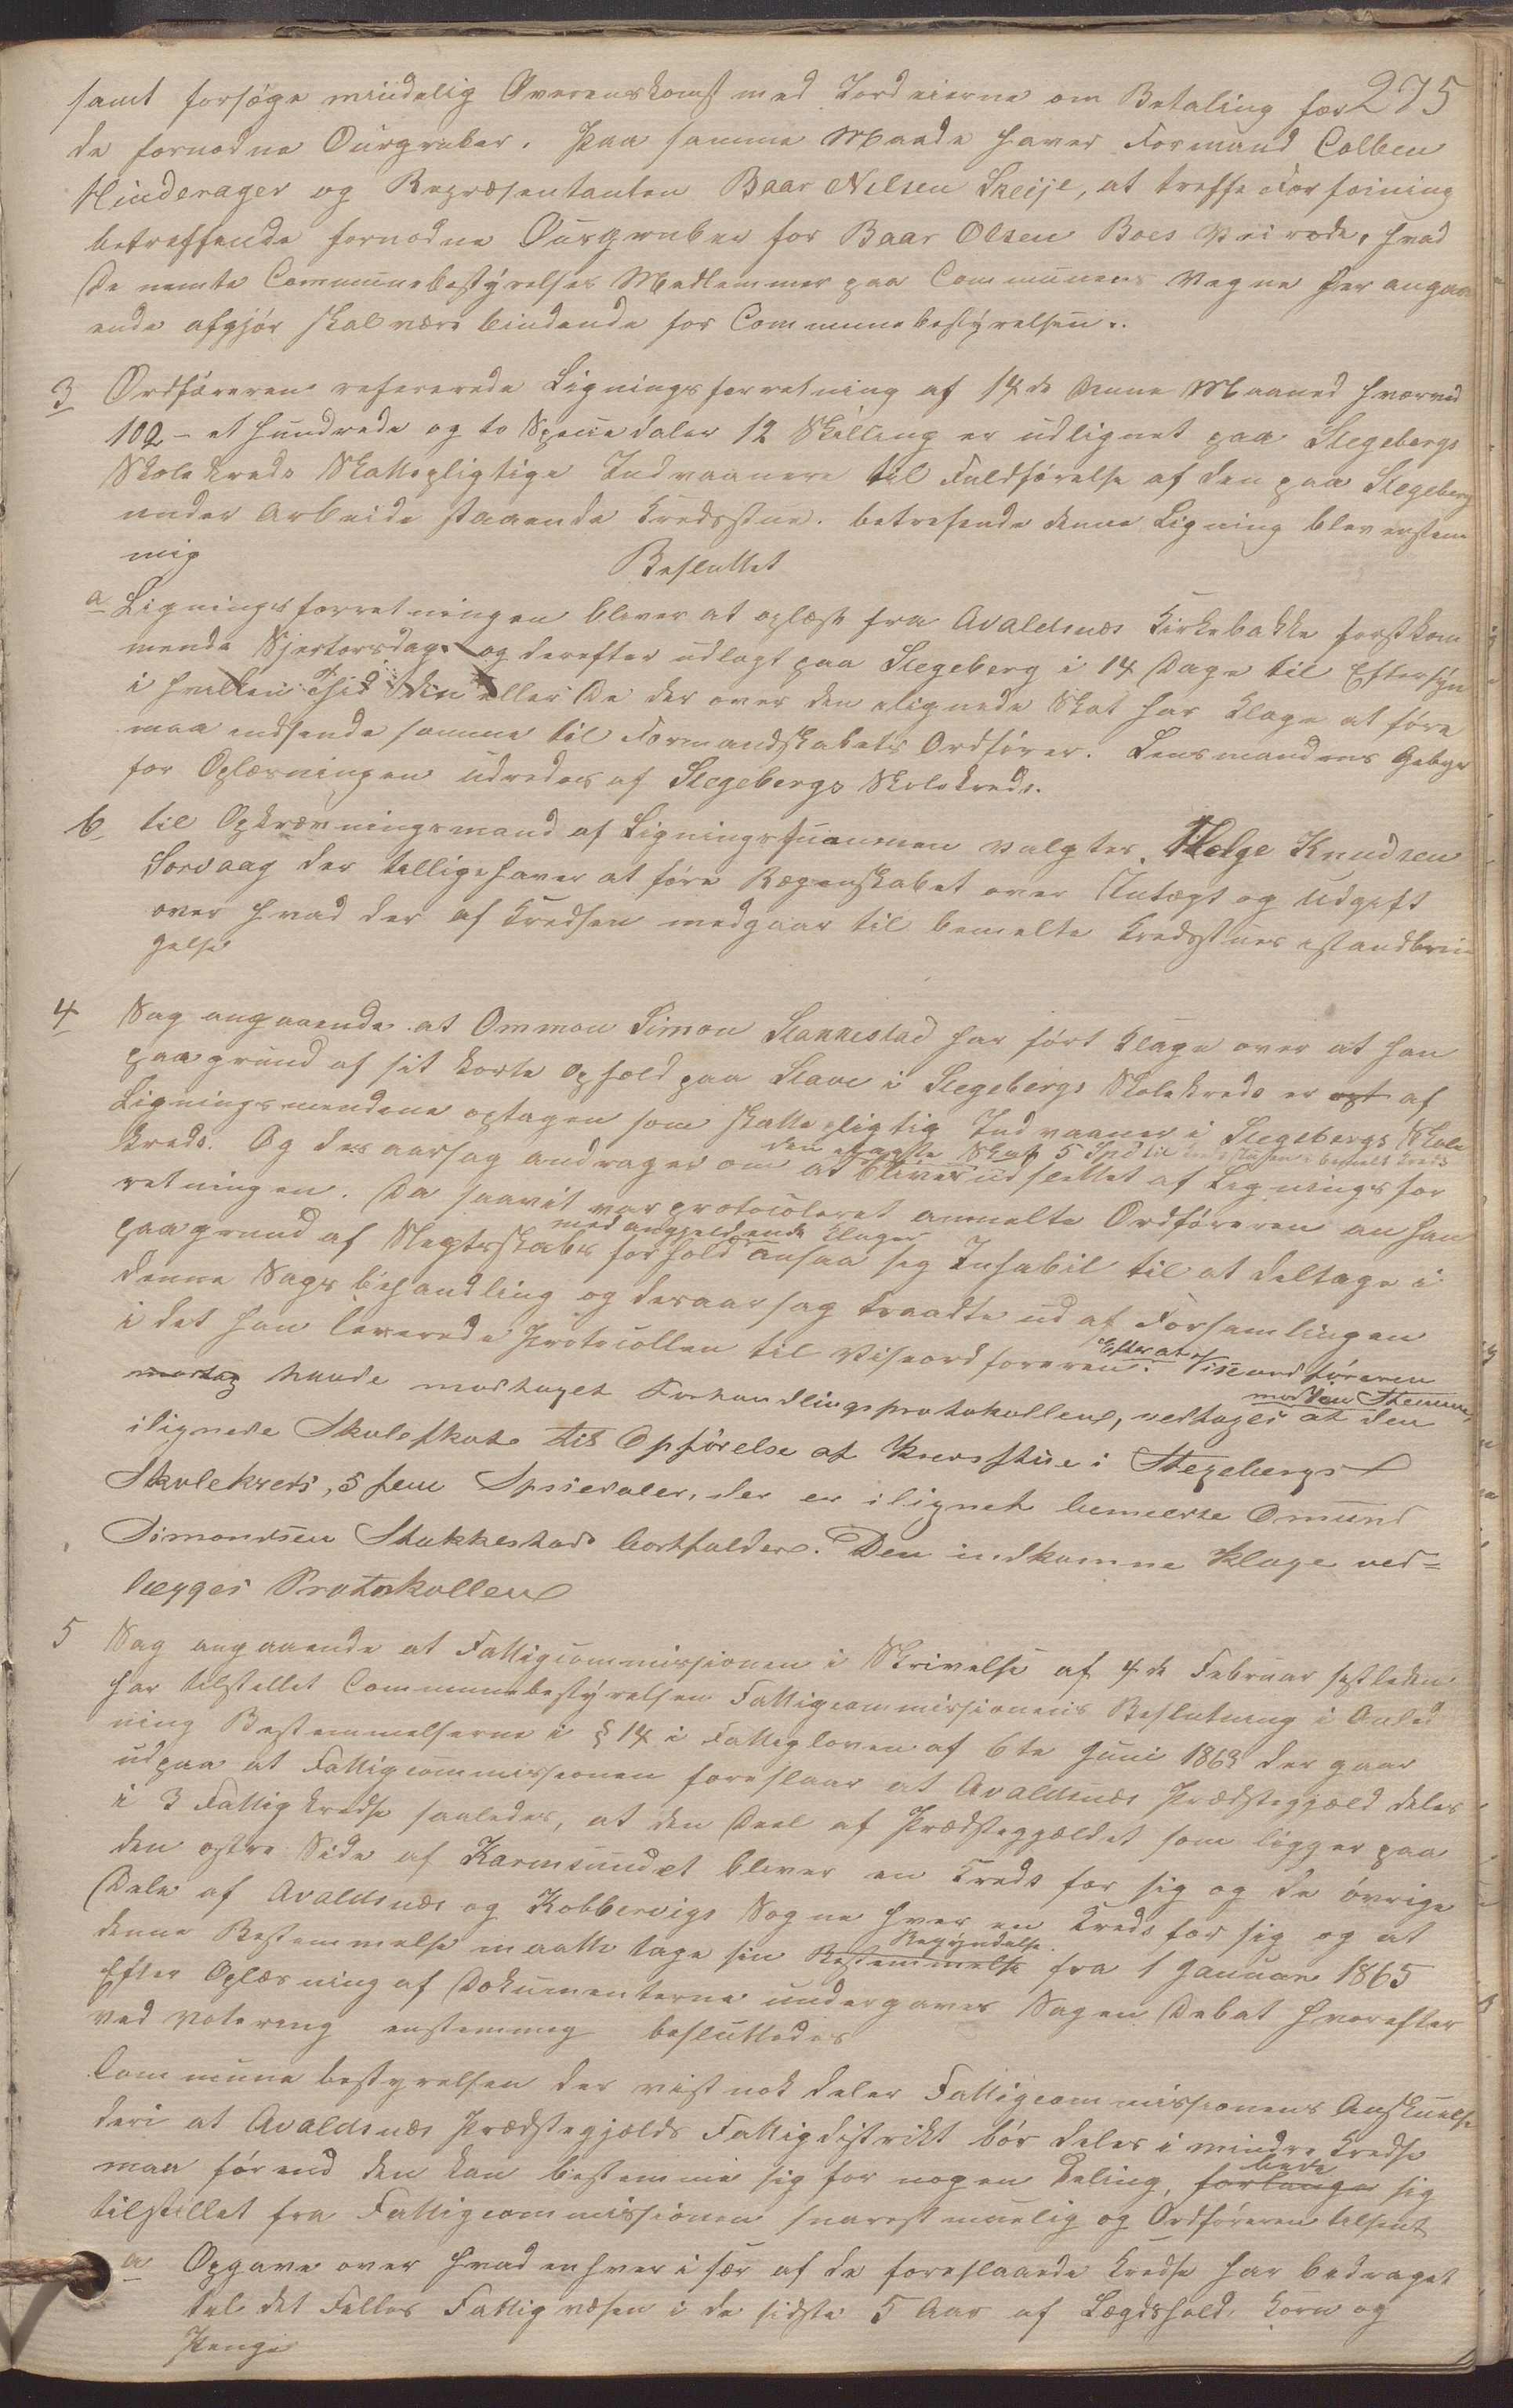 275
samt forsøge mindelig Overenskomst med Jordeierne om Betaling for
de fornødne Ourgruber. Paa samme Maade haver Formand Colben
Hinderager og Repræsentanten Baar Nilsen Skeije, at træffe Forføining
betreffende fornødne Ourgruber for Baar Olsen Boes Veirode, hvad
De nemte Communebestyrelses Medlemmer paa Communens Vegne her angaa
ende afgjør skal være bindende for Communebestyrelsen.
3 Ordføreren refererede Ligningsforretning af 14de denne Maaned hvorved
102 - et hundrede og to Speciedaler 12 Skilling er udlignet paa Stegebergs
Skolekreds Skattepligtige Indvaanere til Fuldførelse af den paa Stegeberg
under Arbeide staaende Kredsstue. betrefende denne Ligning blev enstem
mig
Besluttet
a Ligningsforretningen bliver at oplæse fra Avaldsnæs Kirkebakke førstkom
mende Skjertorsdag og derefter udlagt paa Stegeberg i 14 Dage til Eftersyn
i hvilken Tid den eller De der over den ilignede Skat har Klage at føre
maa indsende samme til Formandskabets Ordfører. Lensmandens Gebyr
for Oplæsningen udredes af Stegebergs Skolekreds.
b til Opkrævningsmand af Ligningssummen valgtes Helge Knudsen
Sorvaag der tillige haver at føre Regnskabet over Intægt og Udgift
over hvad der af Kredsen medgaar til bemelte Kredsstues istandbrin
gelse
4 Sag angaaende at Ommon Simon Stakkestad har ført Klage over at han
paa grund af sit korte Ophold paa Stave i Stegebergs Skolekreds er opt af
Ligningsmendene optagen som skattepligtig Indvaaner i Stegebergs Skole
den ilignede Skat 5 Spd til Kredsstuen i bemelt Kreds
kreds. Og des aarsag andrager om at bliver udslettet af Ligningsfor
retningen. Da saavit var protocoleret anmelte Ordføreren an han
med angjeldende Klager
paa grund af Slegtskabs forhold ansaa seg Inhabil til at deltage i
denne Sags behandling og desaarsag traadte ud af Forsamlingen
i det han leverede Protocollen til Viseordføreren. Efter at Viseordføreren
modtog havde modtaget Forhandlingsprotokollen, vedtoges mod een Stemme, at den
ilignede Skoleskat til Opførelse af Kredsstue i Stegebergs
Skolekreds, 5 fem Spsiedaler, der er ilignet bemeldte Omund
Simondsen Stakkestad bortfalder. Den indkomne Klage ved=
lægges Protokollen
5 Sag angaaende at Fattigcommissionen i Skrivelse af 4de Februar sistleden
har tilstillet Communebestyrelsen Fattigcommissionens Beslutning i Anled
ning Bestemmelserne i § 14 i Fattigloven af 6te Juni 1863 der gaar
udpaa at Fattigcommissionen foreslaar at Avaldsnæs Prædstegjæld deles
i 3 Fattigkredse saaledes, at den Deel af Prædstegjældet som ligger paa
den østre Side af Karmsundet bliver en Kreds for sig og de øvrige
Dele af Avaldsnæs og Kobbervigs Sogne hver en Kreds for sig og at
denne Bestemmelse maatte tage sin Bestemmelse Begyndelse fra 1 Januar 1865
Efter Oplæsning af Dokumenterne undergaves Sagen Debat hvorefter
ved Votering enstemmig besluttedes
Communebestyrelsen der vistnok deler Fattigcommissionens Anskuelse
deri at Avaldsnæs Prædstegjælds Fattigdistrikt bør deles i mindre Kredse
maa før end den kan bestemme sig for nogen Deling, forlange bede sig
tilstillet fra Fattigcommissionen snarest muelig og Ordføreren tilsent
a Opgave over hvad enhver i sær af de foreslaaede Kredse har bedraget
til det Felles Fattigvæsen i de sidste 5 Aar af Lægdshold, Korn og
Penge